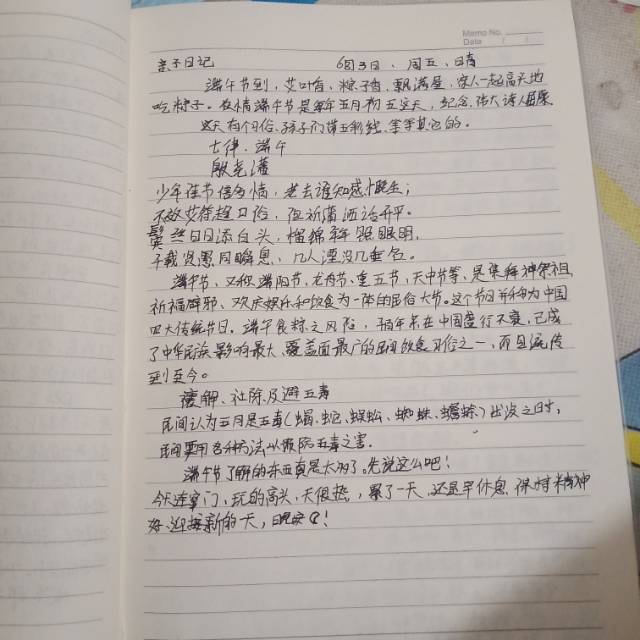 Memo No.
Date / /
亲子日记 6月3日、周五、日晴
端午节到,艾叶香,粽子香,飘满屋,家人一起高兴地
吃粽子。在情端午节是每年五月初五这天,纪念伟大诗人屈原
这天有个习俗,孩子们带五彩线,等等其它的。
七律·端午
殷尧藩
少年佳节倍多情,老去谁知感慨生;
不效艾符趋习俗,但祈蒲酒话升平。
鬓丝日日添白头,榴锦年年照眼明,
千载贤愚同瞬息,几人湮没几垂名。
端午节、又称端阳节、龙舟节、重五节、天中节等、是集拜神祭祖、
祈福辟邪、欢庆娱乐和饮食为一体的民俗大节。这个节日并称为中国
四大传统节日。端午食粽之风俗,千百年来在中国盛行不衰,已成
了中华民族影响最大、覆盖面最广的民间饮食习俗之一,而且流传
到至今。
禳解、社除及避五毒
民间认为五月是五毒(蝎、蛇、蜈蚣、蜘蛛、蟾蜍)出没之时,
民间要用各种方法以预防五毒之害.
端午节了解的东西真是太多了。先说这么吧!
今天连掌门,玩的高兴,天很热,累了一天,还是早休息,保持精神
好迎接新的一天,晚安!